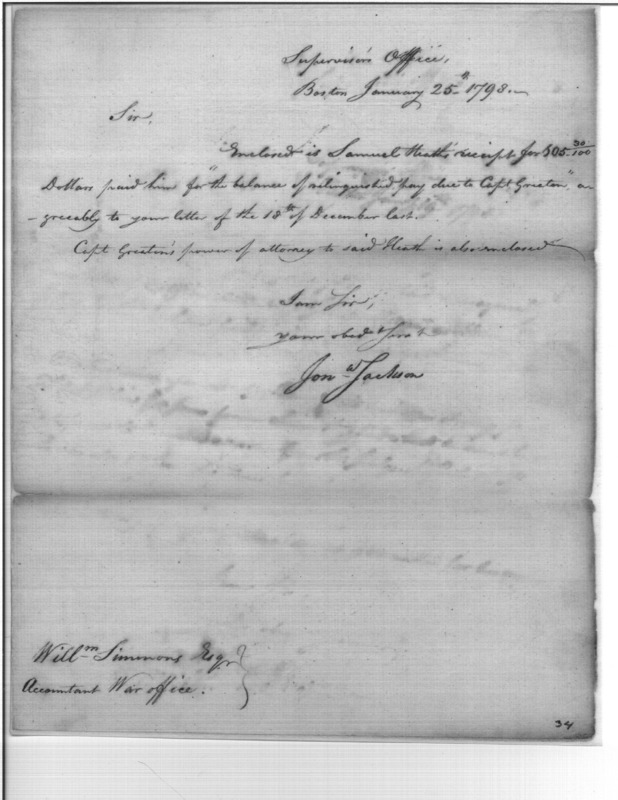 Supervisor's Office,
Boston January 25th 1798.
Sir,
Enclosed is Samuel Heath's receipt for 305 30/100
Dollars paid him for "the balance of relinquished pay due to Capt Greaton," a
-greeably to your letter of the 18th of December last.
Capt Greaton's power of attorney to said Heath is also enclosed
I am Sir,
your obedt Servt
Jona Jackson
Willm Simmons Esqr
Accountant War office.
34